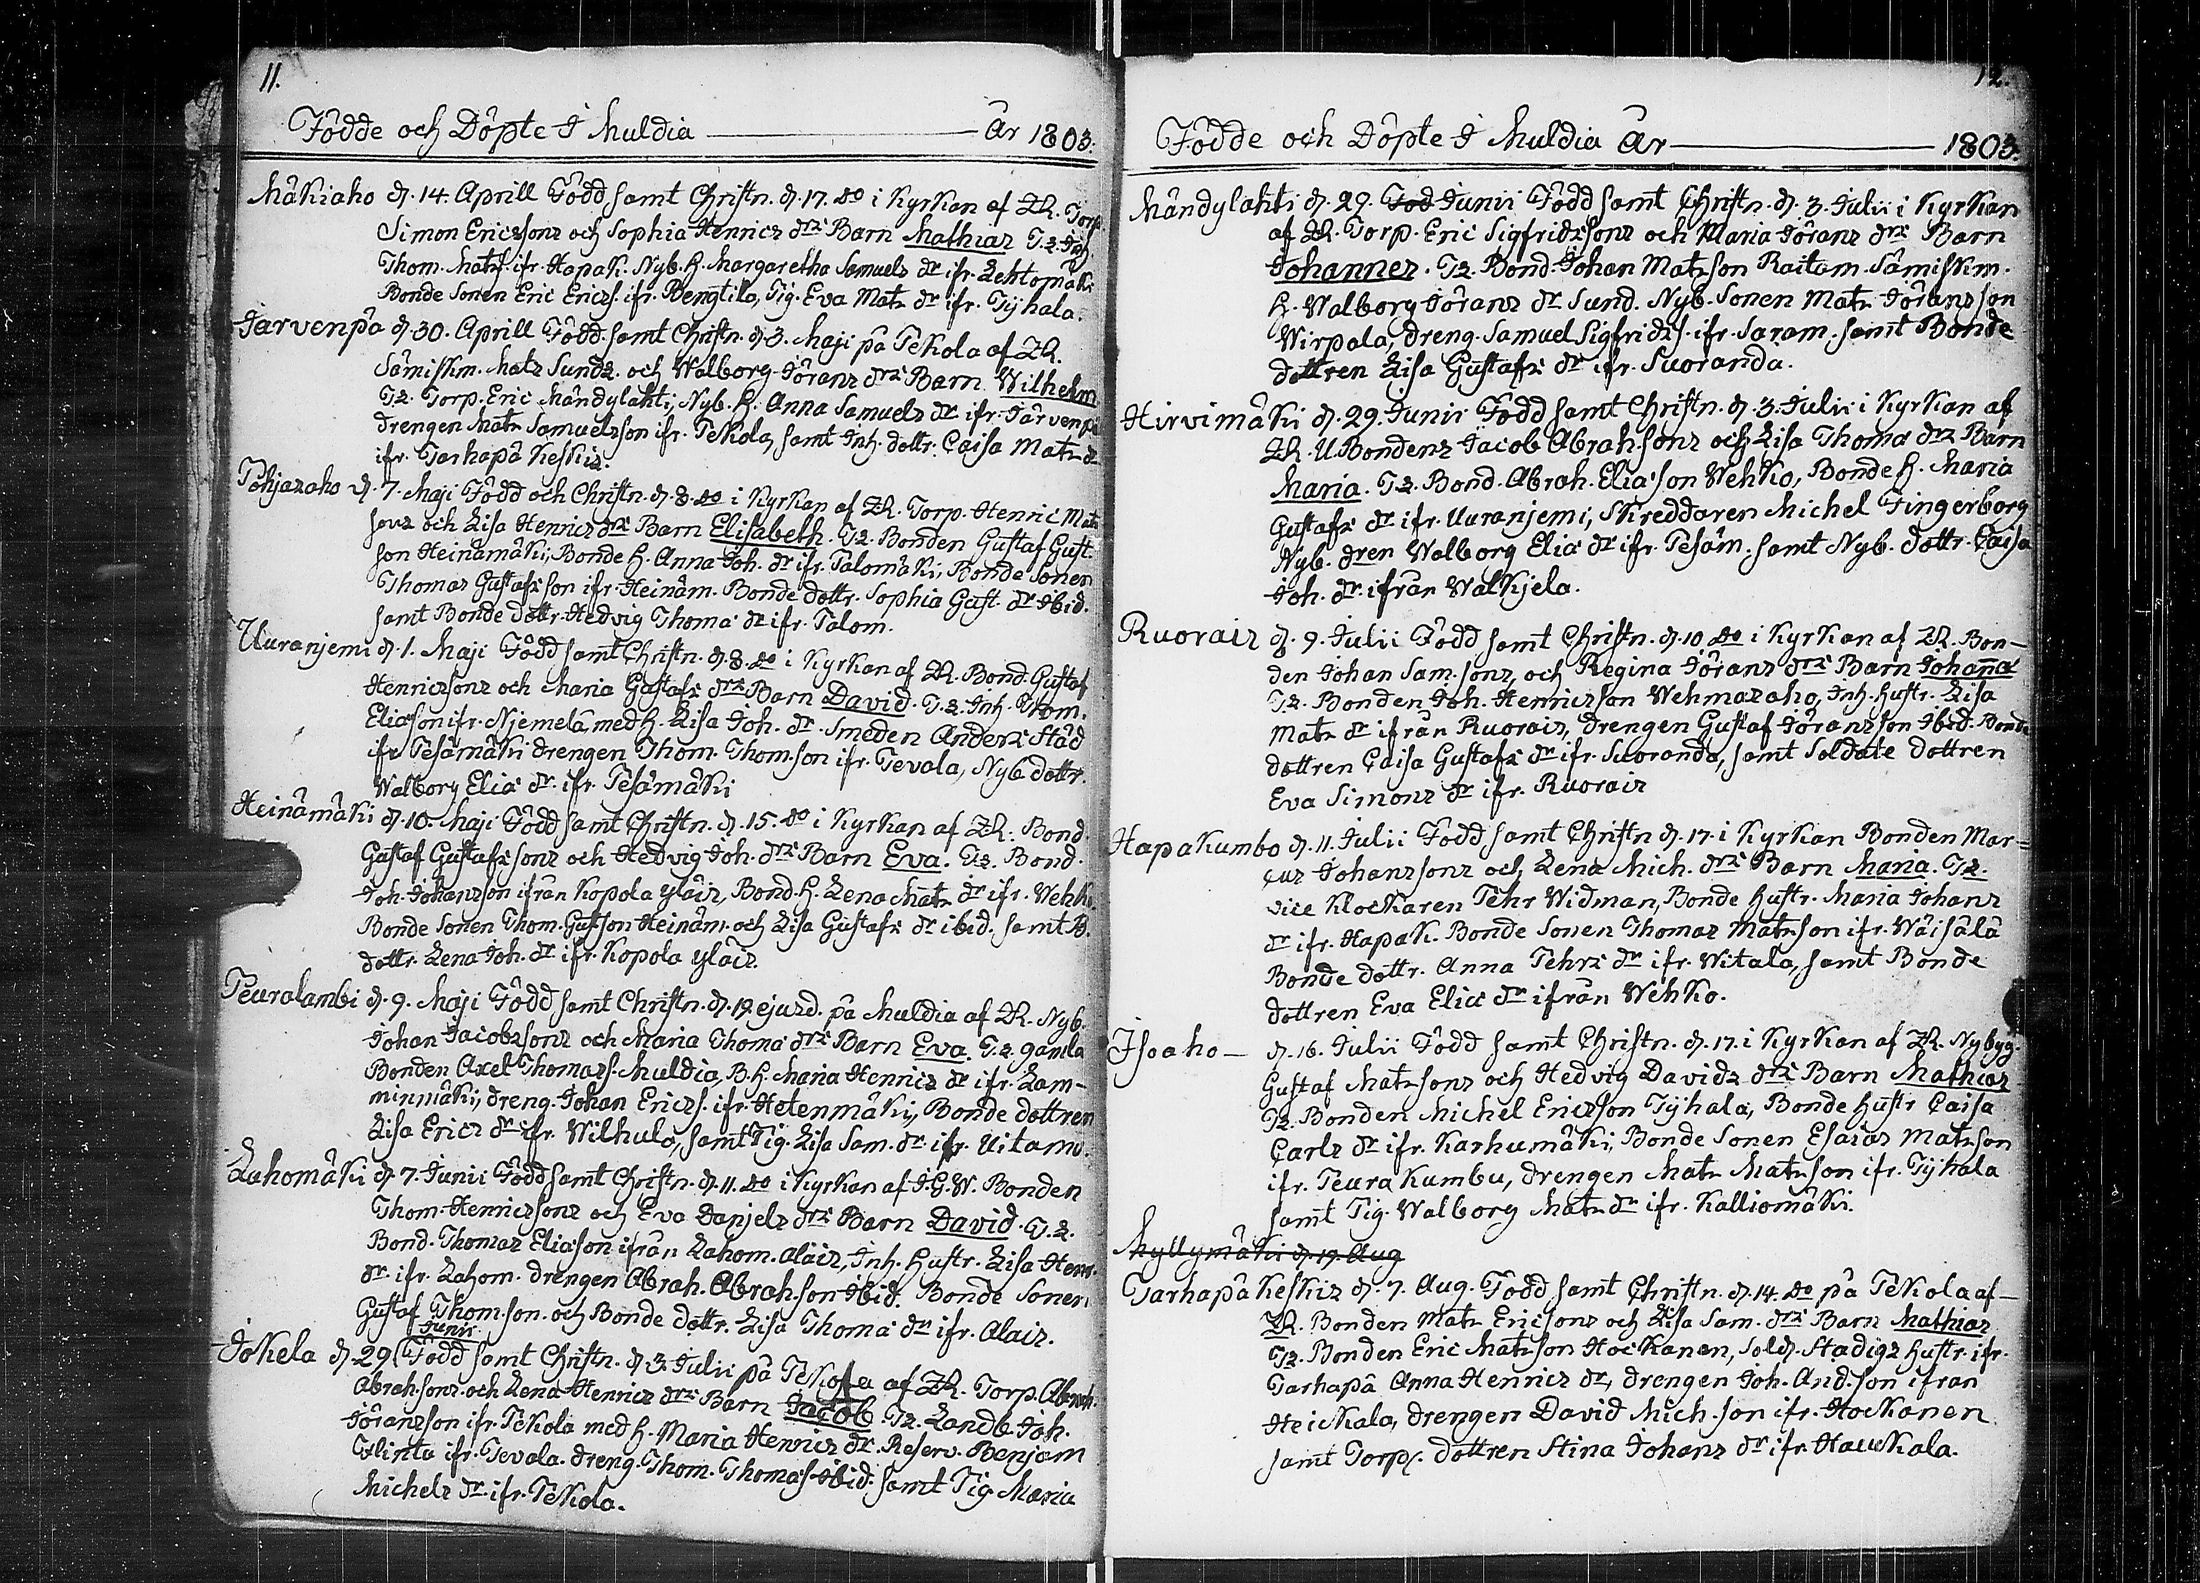 11.
Födde och Döpte I Muldia — År 1803.
Mäkiaho d. 14. Aprill Född samt Christn. d. 17. do i Kyrkan af ZR. Torp.
Simon Ericssons och Sophia Henrics drs Barn Mathias T. 2. Inh.
Thom. Matss. ifr. Hapak. Nyb. h. Margaretha Samuels dr ifr. Lehtomäki
Bonde Sonen Eric Erics. ifr. Bengtila, Pig. Eva Mats dr ifr. Tyhala.
Jarvenpä d. 30. Aprill Född samt Christn. d. 3. Maji på Pekola af ZR.
Sämiskm. Mats Sunds. och Walborg Jörans drs Barn Wilhelm
T2. Torp. Eric Mändylahti, Nyb. h. Anna Samuels dr ifr. Järvenpä
drengen Mats Samuelsson ifr. Pekola, samt Inh. dottr. Caisa Mats dr
ifr. Tarhapä Keskis.
Pohjasaho d. 7. Maji Född och Christn. d. 8. do i Kyrkan af ZR. Torp. Henric Mats
sons och Lisa Henrics drs Barn Elisabeth. T2. Bonden Gustaf Gust.
son Heinämäki, Bonde h. Anna Joh. dr ifr. Palomäki, Bonde Sonen
Thomas Gustafs son ifr. Heinäm. Bonde dottr. Sophia Gust. dr Ibid.
samt Bonde dottr. Hedvig Thoma dr ifr. Palom.
Uuranjemi d. 1. Maji Född samt Christn. d. 8. do i Kyrkan af ZR. Bond. Gustaf
Henricssons och Maria Gustafs drs Barn David. T. 2. Inh. Thom.
Eliasson ifr. Njemelä med h. Lisa Joh. dr. Smeden Anders Städ
ifr. Pesämäki drengen Thom. Thomson ifr. Tevala, Nyb dottr.
Walborg Elia dr. ifr. Pesämäki
Heinämäki d. 10. Maji Född samt Christn. d. 15. do i Kyrkan af ZR. Bond.
Gustaf Gustafs sons och Hedvig Joh. drs Barn Eva. T2. Bond.
Joh. Johansson ifrån Kopola yläis, Bond. h. Lena Mats dr ifr. Wehko
Bonde Sonen Thom. Gustson Heinäm. och Lisa Gustafs dr ibid. samt B.
dottr. Lena Joh. dr ifr. Kopola yläis.
Peuralambi d. 9. Maji Född samt Christn. d. 19. ejusd. på Muldia af ZR. Nyb.
Johan Jacobssons och Maria Thoma drs Barn Eva. T. 2. gamla
Bonden Axel Thomas. Muldia, B. h. Maria Henrics dr ifr. Lam-
minmäki, dreng. Johan Erics. ifr. Hetenmäki, Bonde dottren
Lisa Erics dr ifr. Wilhula, samt Pig. Lisa Sam. dr. ifr. Uitamo.
Lahomäki d. 7. Junii Född samt Christn. d. 11. do i Kyrkan af I.G.W. Bonden
Thom. Henricssons och Eva Danjels drs Barn David. T. 2.
Bond. Thomas Eliasson ifrån Lahom. alais, Inh. hustr. Lisa Henr.
dr. ifr. Lahom. drengen Abrah. Abrah. son Ibid. Bonde Sonen
Gustaf Thom. son. och Bonde dottr. Lisa Thoma dr ifr. Alais.
Junii
Jokela d. 29. Född samt Christn. d. 3. Julii på Pekola af ZR. Torp. Abrah.
Abrah. sons. och Lena Henrics drs Barn Jacob T2. Landb. Joh.
Jöransson ifr. Pekola med h. Maria Henrics dr. Reserv. Benjam
Glinta ifr. Tevala. dreng. Thom. Thomas. Ibid. samt Pig. Maria
Michels dr. ifr. Pekola.
12.
Födde och Döpte I Muldia År — 1803.
Mändylahti d. 29. Junii Född samt Christn. d. 3. Julii i Kyrkan
af ZR. Torp. Eric Sigfridssons och Maria Jörans drs Barn
Johannes. T2. Bond. Johan Matsson Raitam. Sämiskm.
h. Walborg Jörans dr Sund. Nyb. Sonen Mats Jöransson
Wirpala, dreng. Samuel Sigfrids. ifr. Saram. samt Bonde
dottren Lisa Gustafs dr ifr. Suoranda.
Hirvimäki d. 29. Junii Född samt Christn. d. 3. Julii i Kyrkan af
ZR. U Bondens Jacob Abrah. sons och Lisa Thoma drs Barn
Maria. T2. Bond. Abrah. Eliasson Wehko, Bonde h. Maria
Gustafs dr ifr. Uuranjemi, Skreddaren Michel Fingerborg
Nyb. dren Walborg Elia dr ifr. Pesäm. samt Nyb. dottr. Caisa
Joh. dr. ifrån Walkjela.
Ruorais d. 9. Julii Född samt Christn. d. 10 do i Kyrkan af ZR. Bon-
den Johan Sam. sons, och Regina Jörans drs Barn Johana
T2. Bonden Joh. Henricsson Wehmasaho, Inh. hustr. Lisa
Mats dr ifrån Ruorais, drengen Gustaf Jöransson Ibid. Bonde
dottren Caisa Gustafs dr ifr. Suoranda, samt Soldate dottren
Eva Simons dr ifr. Ruorais
Hapakumbo d. 11. Julii Född samt Christn d. 17. i Kyrkan Bonden Mar=
cus Johanssons och Lena Mich. drs Barn Maria. T2.
vice Klockaren Pehr Widman, Bonde hustr. Maria Johans
dr ifr. Hapak. Bonde Sonen Thomas Matsson ifr. Wäisälä
Bonde dottr. Anna Pehrs dr ifr. Witala, samt Bonde
dottren Eva Elia dr ifrån Wehko.
Isoaho — d. 16. Julii Född samt Christn. d. 17. i Kyrkan af ZR. Nybyg.
Gustaf Matssons och Hedvig Davids drs Barn Mathias
T2. Bonden Michel Ericsson Tyhala, Bonde hustr Caisa
Carls dr ifr. Karhumäki, Bonde Sonen Esaias Matsson
ifr. Peura Kumbu, drengen Mats Matsson ifr. Tyhala
samt Pig. Walborg Mats dr ifr. Kalliomäki.
Myllymäki d. 19. Aug
Tarhapä Keskis d. 7. Aug. Född samt Christn. d. 14. do på Pekola af
ZR. Bonden Mats Ericsons och Lisa Sam. drs Barn Mathias
T2. Bonden Eric Matsson Hockanen, Sold. Stadigs hustr. ifr.
Tarhapä Anna Henrics dr, drengen Joh. And. son ifran
Heickala, drengen David Mich. son ifr. Hockanen
samt Torp. dottren Stina Johans dr ifr. Hauckala.